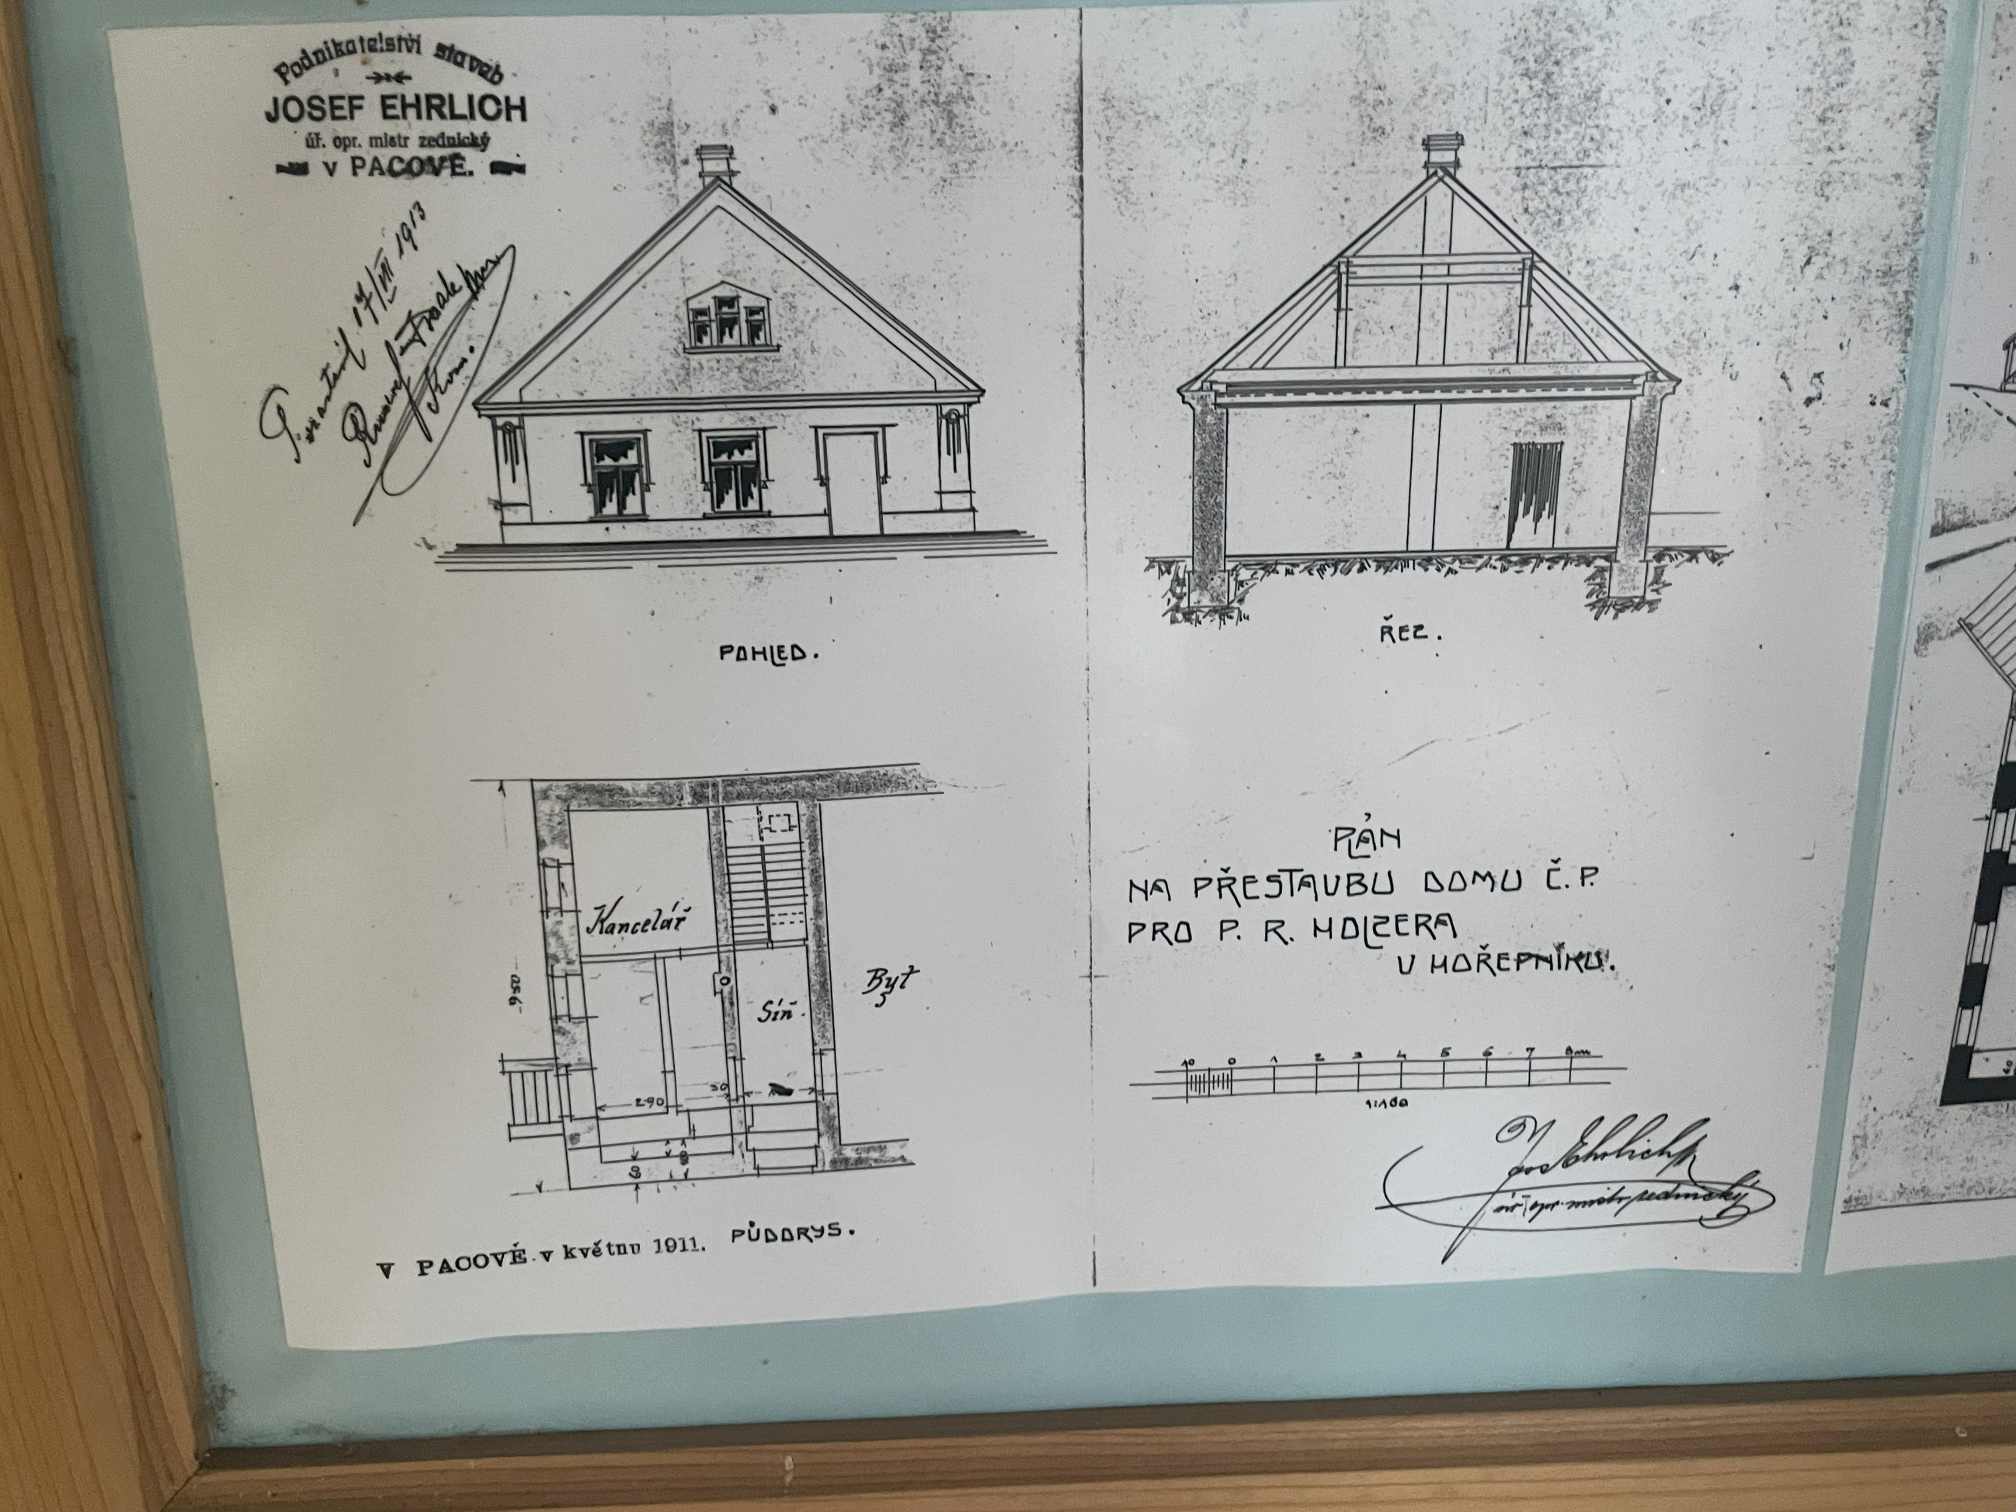 Podnikatelství staveb
JOSEF EHRLICH
úř. opr. mistr zednický
v PACOVĚ.
17/VII 1913
POHLED.
ŘEZ.
Kancelář
Síň.
Byt
290
PLÁN
NA PŘESTAVBU DOMU Č.P.
PRO P. R. HOLZERA
V HOŘEPNÍKU.
10 0 1 2 3 4 5 6 7 8m
1:100
Jos Ehrlich
úř. opr. mistr zednický
PŮDORYS.
V PACOVĚ v květnu 1911.